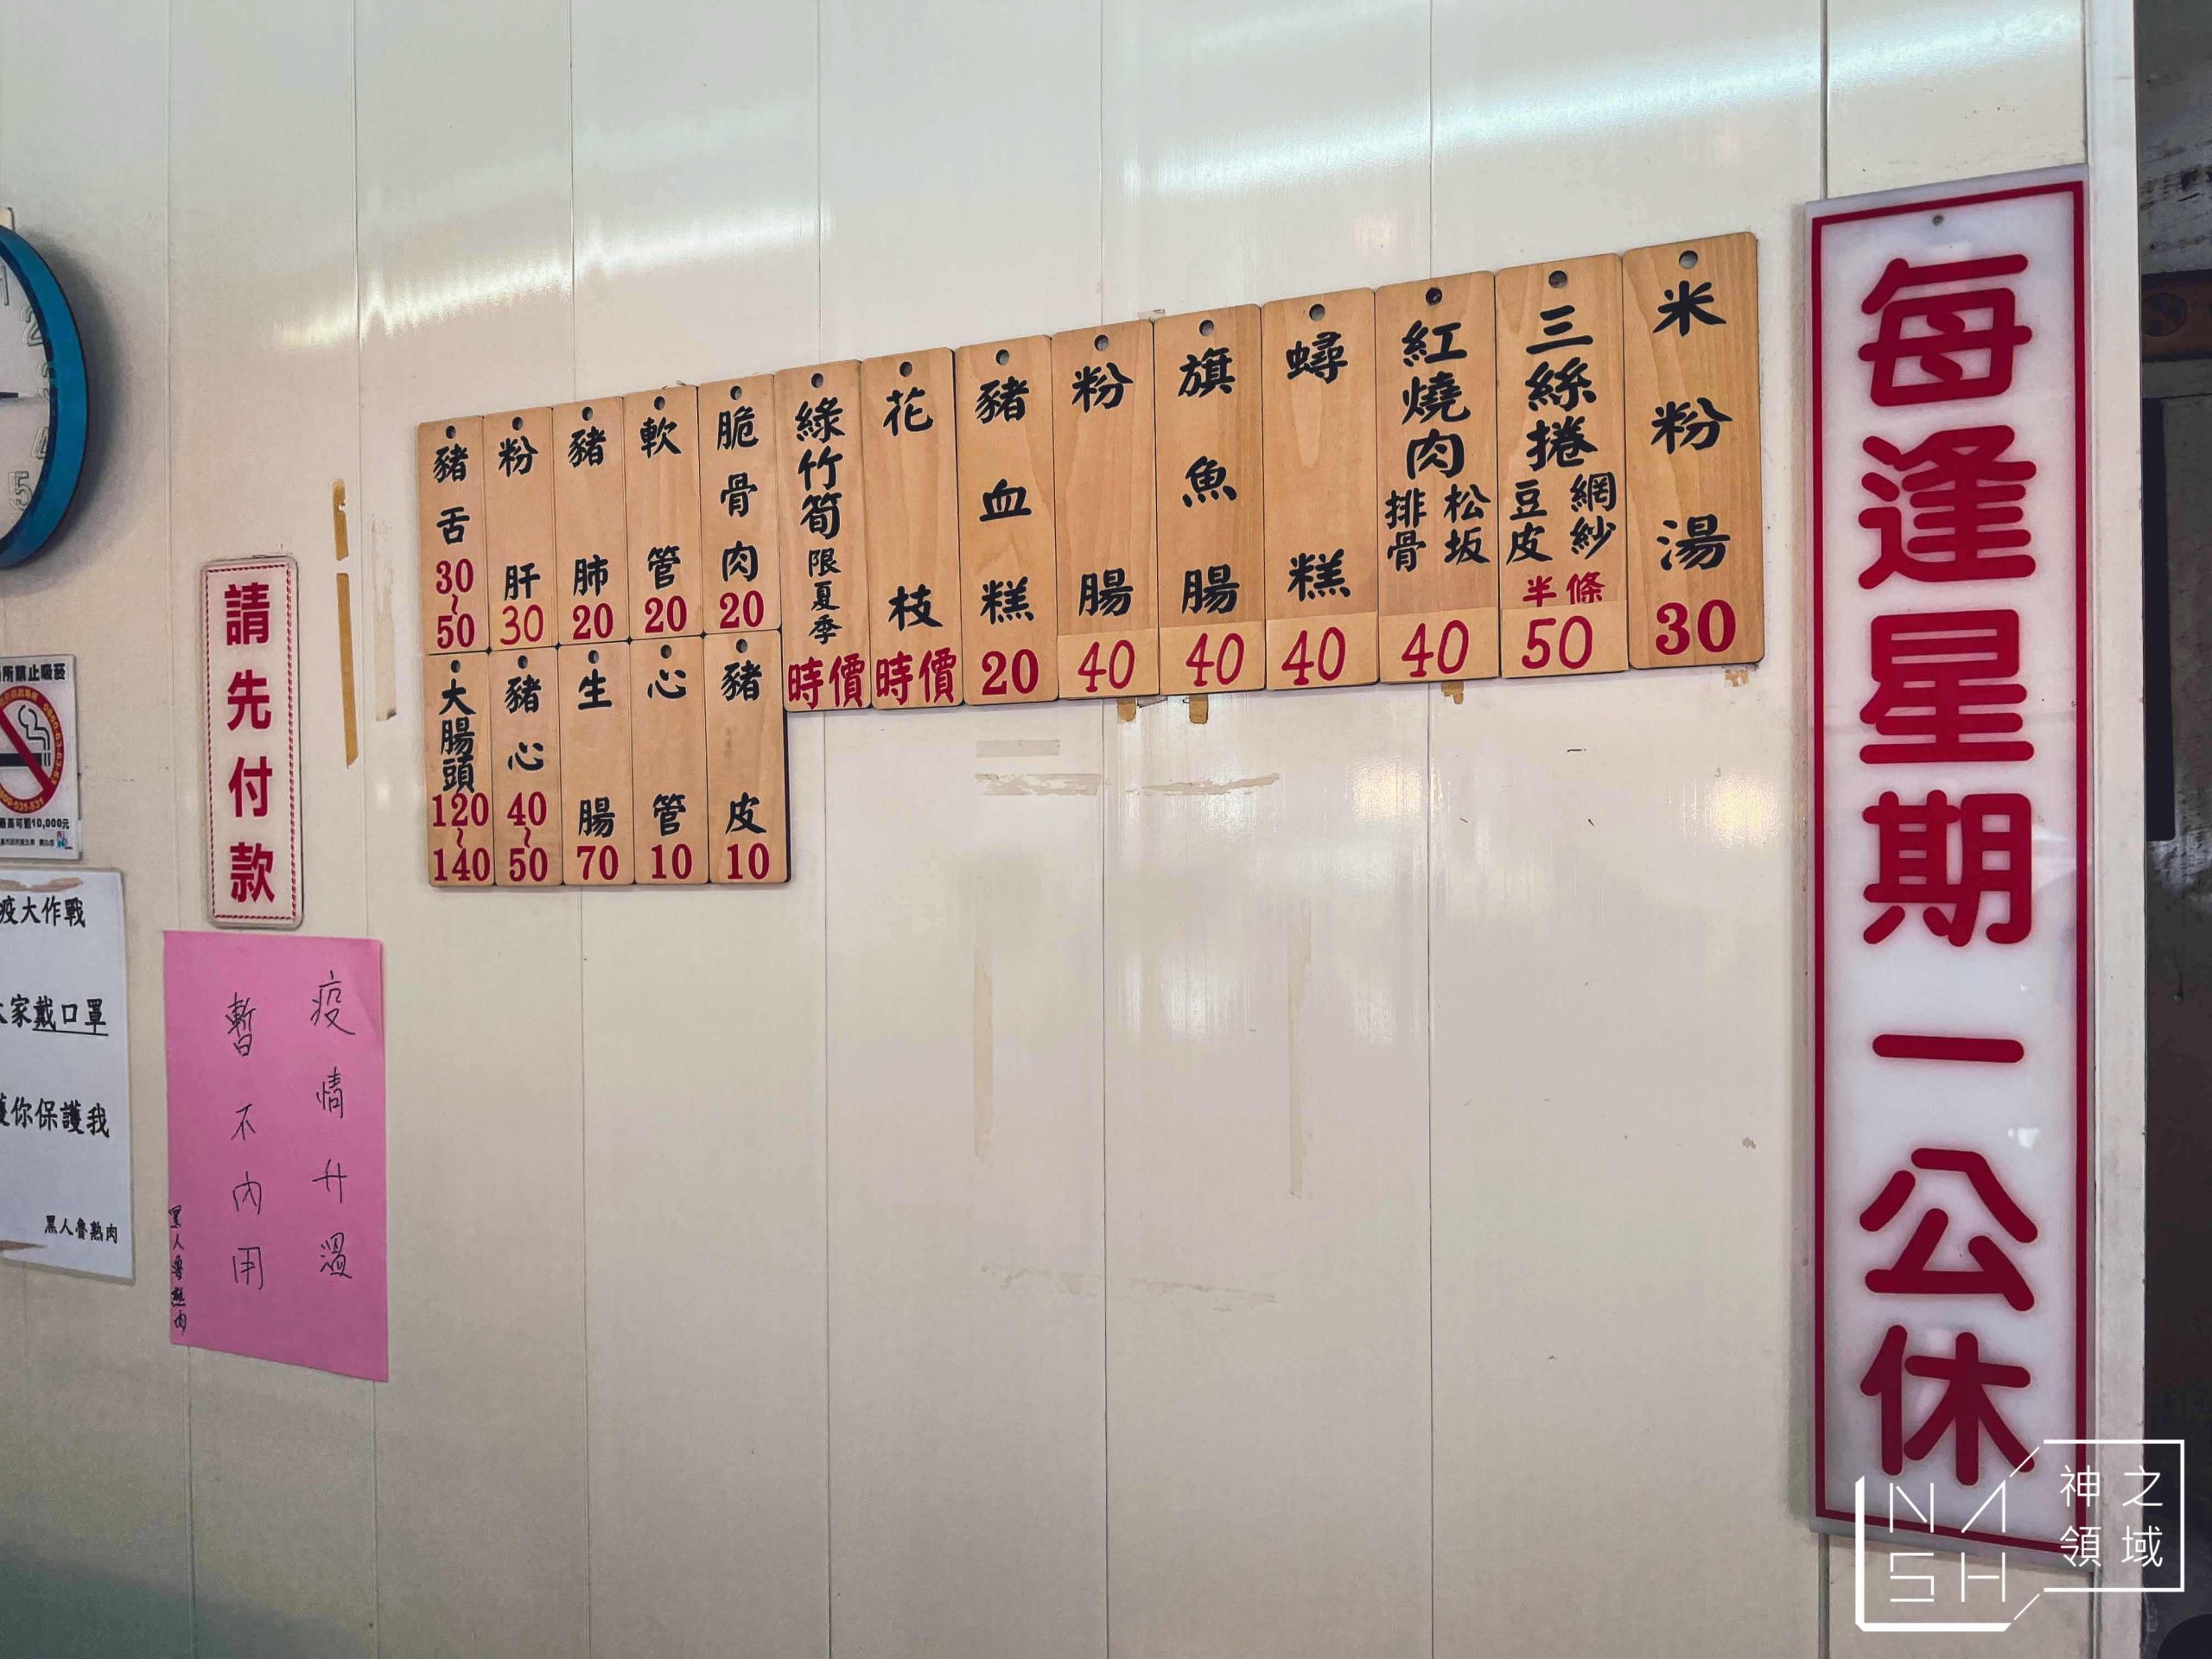 每逢星期一公休
米粉湯 30
三絲捲 網紗 豆皮 半條 50
紅燒肉 松坂 排骨 40
蟳糕 40
旗魚腸 40
粉腸 40
豬血糕 20
花枝 時價
綠竹筍 限夏季 時價
脆骨肉 20
軟管 20
豬肺 20
粉肝 30
豬舌 30~50
豬皮 10
心管 10
生腸 70
豬心 40~50
大腸頭 120~140
請先付款
疫情升溫
暫不內用
黑人魯熟肉
所禁止吸菸
0800-531-531
最高可罰10,000元
疫大作戰
家戴口罩
你保護我
黑人魯熟肉
2
4
5
NASH
神之領域